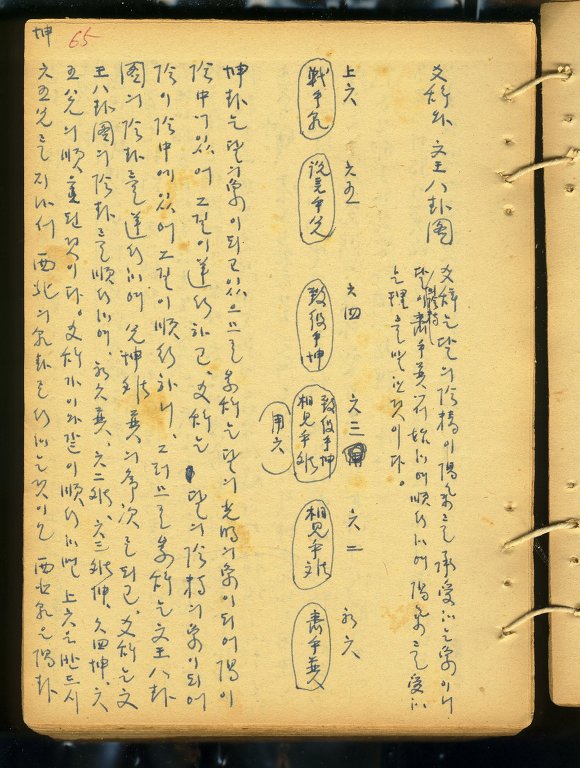 坤 65
爻辭와 文王八卦圖
爻辭는 달의 陰精이 陽氣를 承受하는 象이니
달이 齊乎巽에서 始하여 順行하여 陽氣를 受하
는 理를 말한 것이다。
上六 六五 六四 六三 六二 初六
戰乎乾 說言乎兌 致役乎坤 致役乎坤 相見乎離 相見乎離 齊乎巽
用六
坤卦는 달의 象이 되고 있으므로 彖辭는 달의 光明의 象이 되어 陽이
陰中에 있어 그 길이 逆行하고、爻辭는 달의 陰精의 象이 되어
陰이 陰中에 있어 그 길이 順行하니、그러므로 彖辭는 文王八卦
圖의 陰卦를 逆行하여 兌坤離巽의 序次로 되고、爻辭는 文
王八卦圖의 陰卦를 順行하여、初六巽、六二離、六三離坤、六四坤、六
五兌의 順으로 된 것이다。爻辭가 이와 같이 順行하면 上六은 반드시
六五兌를 지나서 西北의 乾卦로 行하는 것이오 西北乾은 陽卦